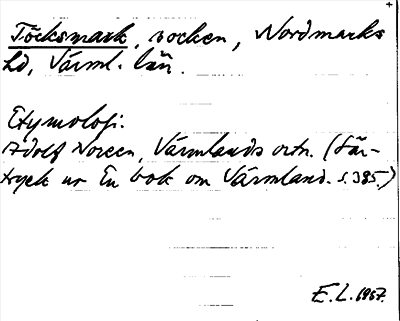 Töcksmark, socken, Nordmarks
hd, Värml. län.
Etymologi:
Adolf Noreen, Värmlands ortn. (Sär-
tryck ur En bok om Värmland. s. 385.)
E.L. 1957.